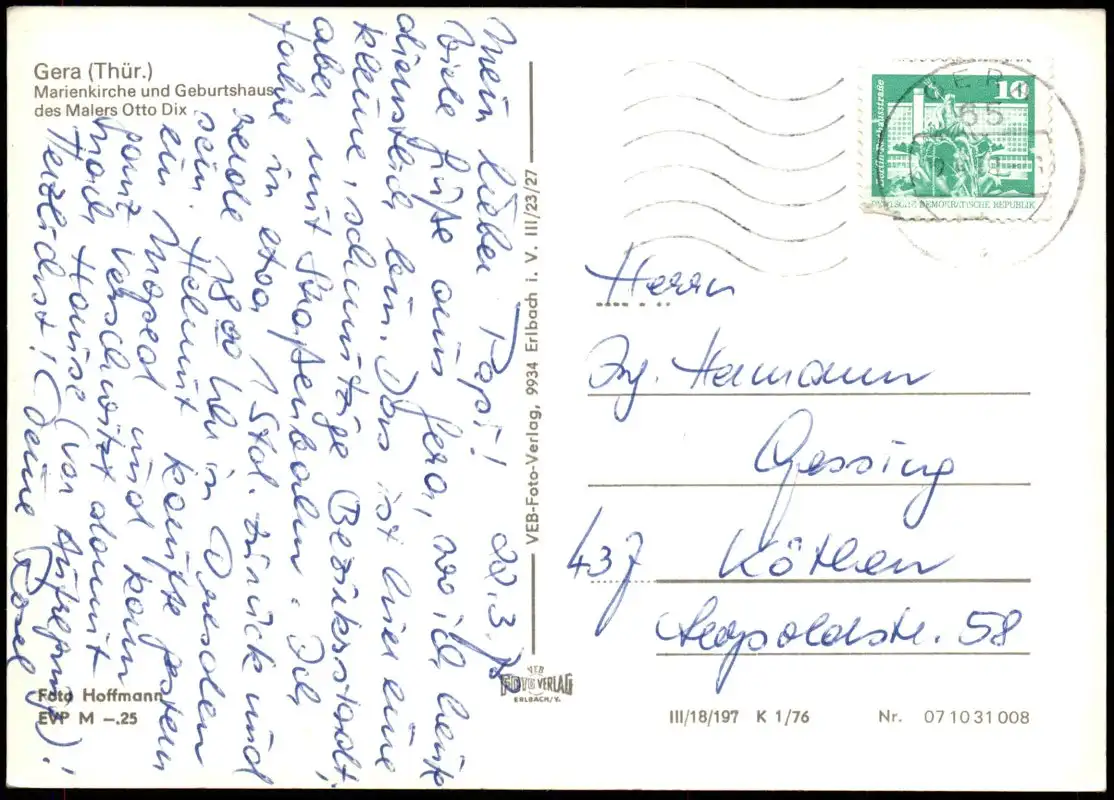 Gera (Thür.)
Marienkirche und Geburtshaus
des Malers Otto Dix
Mein lieber Papi! 22.3.
Viele Grüße aus Gera, wo ich heute
dienstlich bin. Das ist hier eine
kleine, schmutzige Bezirksstadt,
aber mit Straßenbahn. Ich
fahre in etwa 1 Std. zurück und
werde 18 00 Uhr in Dresden
sein. Helmut kaufte gestern
ein Moped und kam
ganz verschwitzt damit
nach Hause (vor Aufregung)!
Herzlichst! Deine Rosel
Foto Hoffmann
EVP M –,25
VEB-Foto-Verlag, 9934 Erlbach i. V. III/23/27
VEB
FOTO VERLAG
ERLBACH/V.
10
DEUTSCHE DEMOKRATISCHE REPUBLIK
GERA
65
Herrn
Ing. Hermann
Gessing
437 Köthen
Leopoldstr. 58
III/18/197 K 1/76 Nr. 07 10 31 008